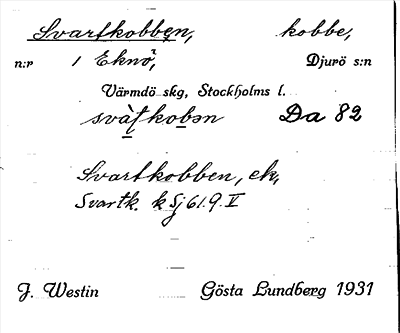 Svartkobben, kobbe,
n:r 1 Eknö, Djurö s:n
Värmdö skg, Stockholms l.
svàʈkobən Da 82
Svartkobben, ek,
Svartk. k Sj 61.9.V
J. Westin Gösta Lundberg 1931